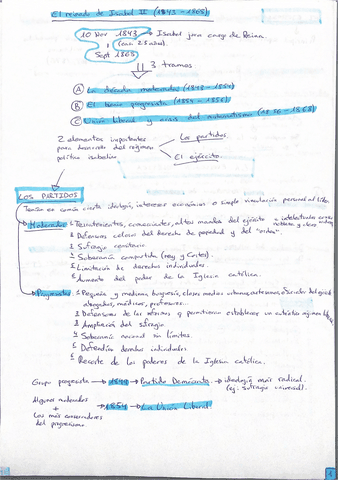 El reinado de Isabel II (1843 - 1868)
10 Nov 1843 → Isabel jura cargo de Reina.
(con 13 años).
Sept 1868
3 tramos
A La década moderada (1843 - 1854)
B El bienio progresista (1854 - 1856)
C Unión Liberal y crisis del moderantismo (1856 - 1868)
2 elementos importantes
para desarrollo del régimen
político isabelino
Los partidos.
El ejército.
LOS PARTIDOS
Tenían en común cierta ideología, intereses económicos o simple vinculación personal al líder.
Moderados: Terratenientes, comerciantes, altos mandos del ejército e intelectuales
nobleza y clero
Defensores celosos del derecho de propiedad y del "orden".
Sufragio censitario
Soberanía compartida (rey y Cortes).
Limitación de derechos individuales.
Aumento del poder de la Iglesia católica.
Progresistas: Pequeña y mediana burguesía, clases medias urbanas, artesanos,
abogados, médicos, profesores.
Defensores de las reformas
Ampliación del sufragio.
Soberanía nacional sin límites.
Defendían derechos individuales
Recorte de los poderes de la Iglesia católica.
Grupo progresista → 1849 → Partido Demócrata → ideología más radical.
(ej. sufragio universal).
Algunos moderados
+
Los más conservadores
del progresismo
→ 1854 → La Unión Liberal
1